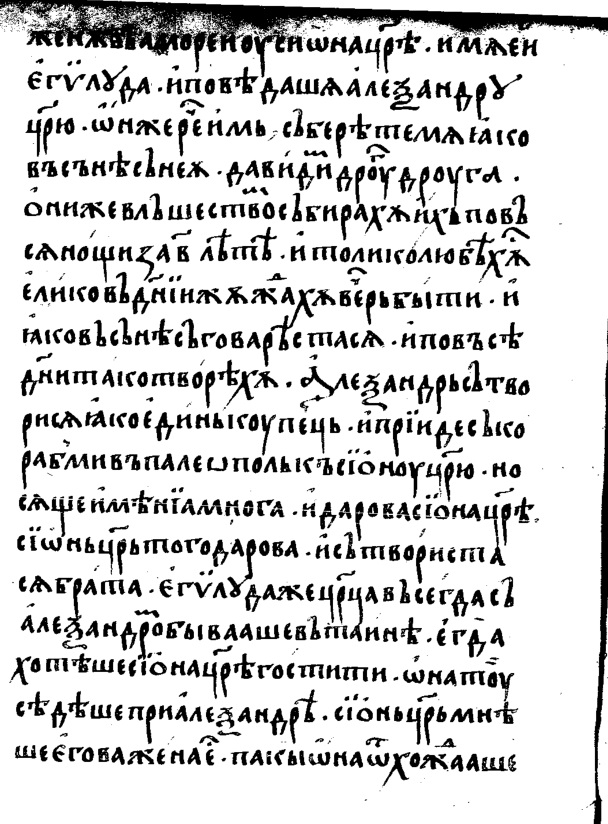 женѫ въ аморей оу сиѡна цр҃ѣ · имѧ ей
егѵлꙋда · и повѣдашѧ алеѯандрꙋ
цр҃ю · ѡн же реⷱ имь съберѣте мѧ ꙗко
въсънѣсь неѧ · давиди дроугꙋ дроуга ·
они же влъшеством събирахѫ ихь повъ
сѧ нощи за в҃ лѣтѣ · и толико любѣхѫ сѧ
елико въ дн҃и и нѫжⷣахѫ вечерь быти · и
ꙗко въсьнѣ сьговарѣста сѧ · и по въсѣ
дн҃и тако творѣхѫ · Алеѯандрь сътво
ри сѧ ꙗко единь коупець · и прїиде сь ко
рабми въ палеѡполь къ сїѡноу цр҃ю · но
сѧще имѣнїа многа · и дарова сїѡна цр҃ѣ ·
сїѡнь цр҃ь того дарова · и сътвориста
сѧ брата · егѵлꙋда же цр҃ца въсегда съ
алеѯандром бываше въ таинѣ · егда
хотѣше сїѡна цр҃ѣ гостити · ѡна тоу
сѣдѣше при алеѯандрѣ · сїѡнь цр҃ь мнѣ
ше егова жена еⷭ · пакы ѡна ѿхождⷣааше